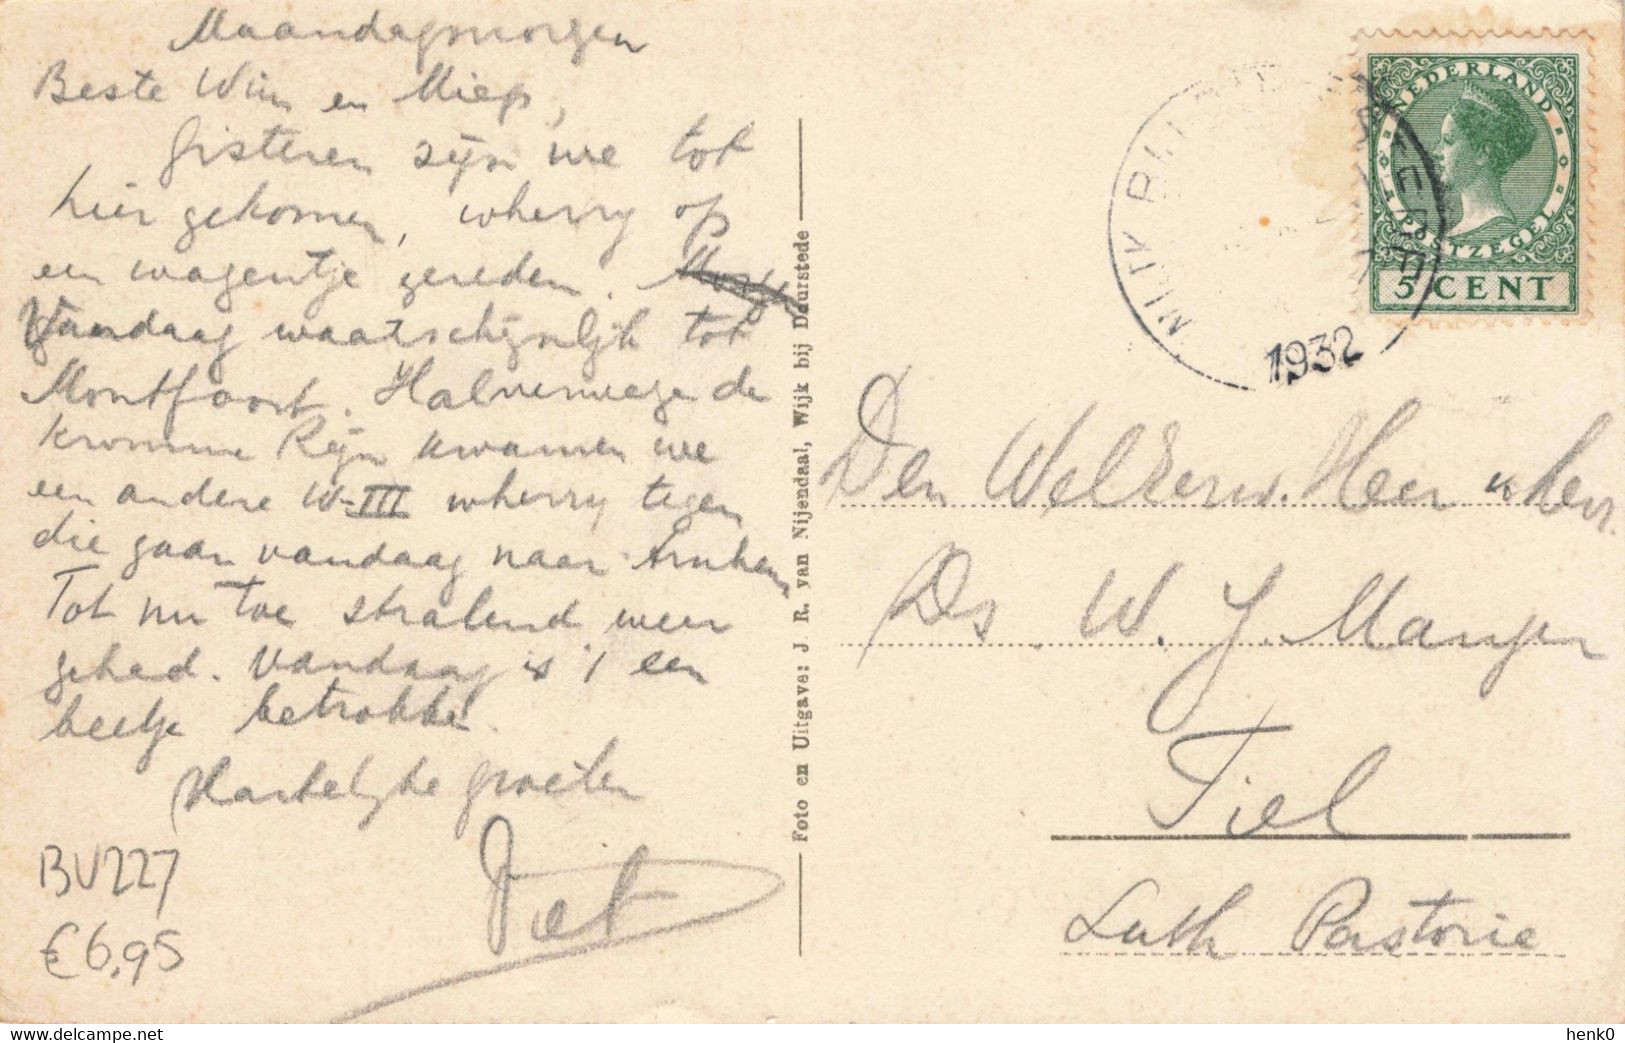 Maandagmorgen
Beste Wim en Miep,
Gisteren zijn we tot
hier gekomen, wherry op
een wagentje gereden.
Vandaag waarschijnlijk tot
Montfoort. Halverwege de
kromme Rijn kwamen we
een andere W-III wherry tegen
die gaan vandaag naar Arnhem
Tot nu toe stralend weer
gehad. Vandaag is 't een
beetje betrokken.
Hartelijke groeten
Piet
BV227
€6,95
Foto en Uitgave: J. R. van Nijendaal, Wijk bij Duurstede
NEDERLAND
POSTZEGEL
5 CENT
WIJK BIJ
1932
Den WelEerw. Heer
Ds W. J. Manger
Tiel
Luth Pastorie
henk0